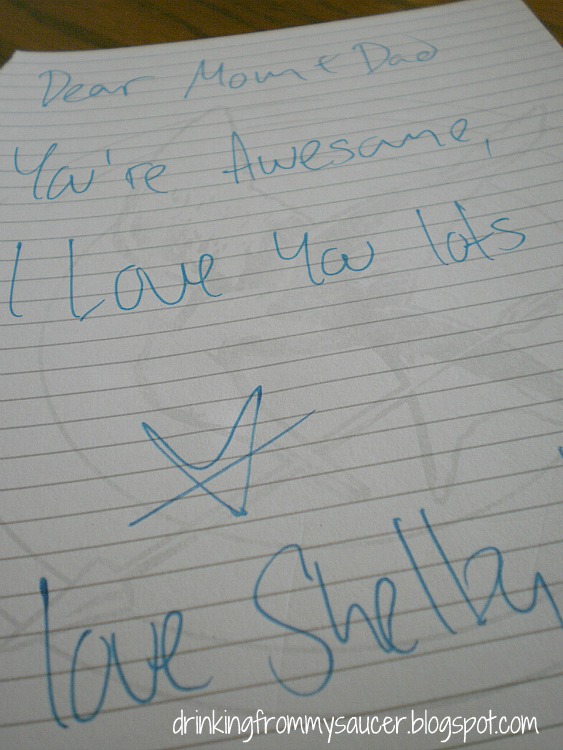 Dear Mom & Dad
You're Awesome,
I Love You lots
love Shelby
drinkingfrommysaucer.blogspot.com